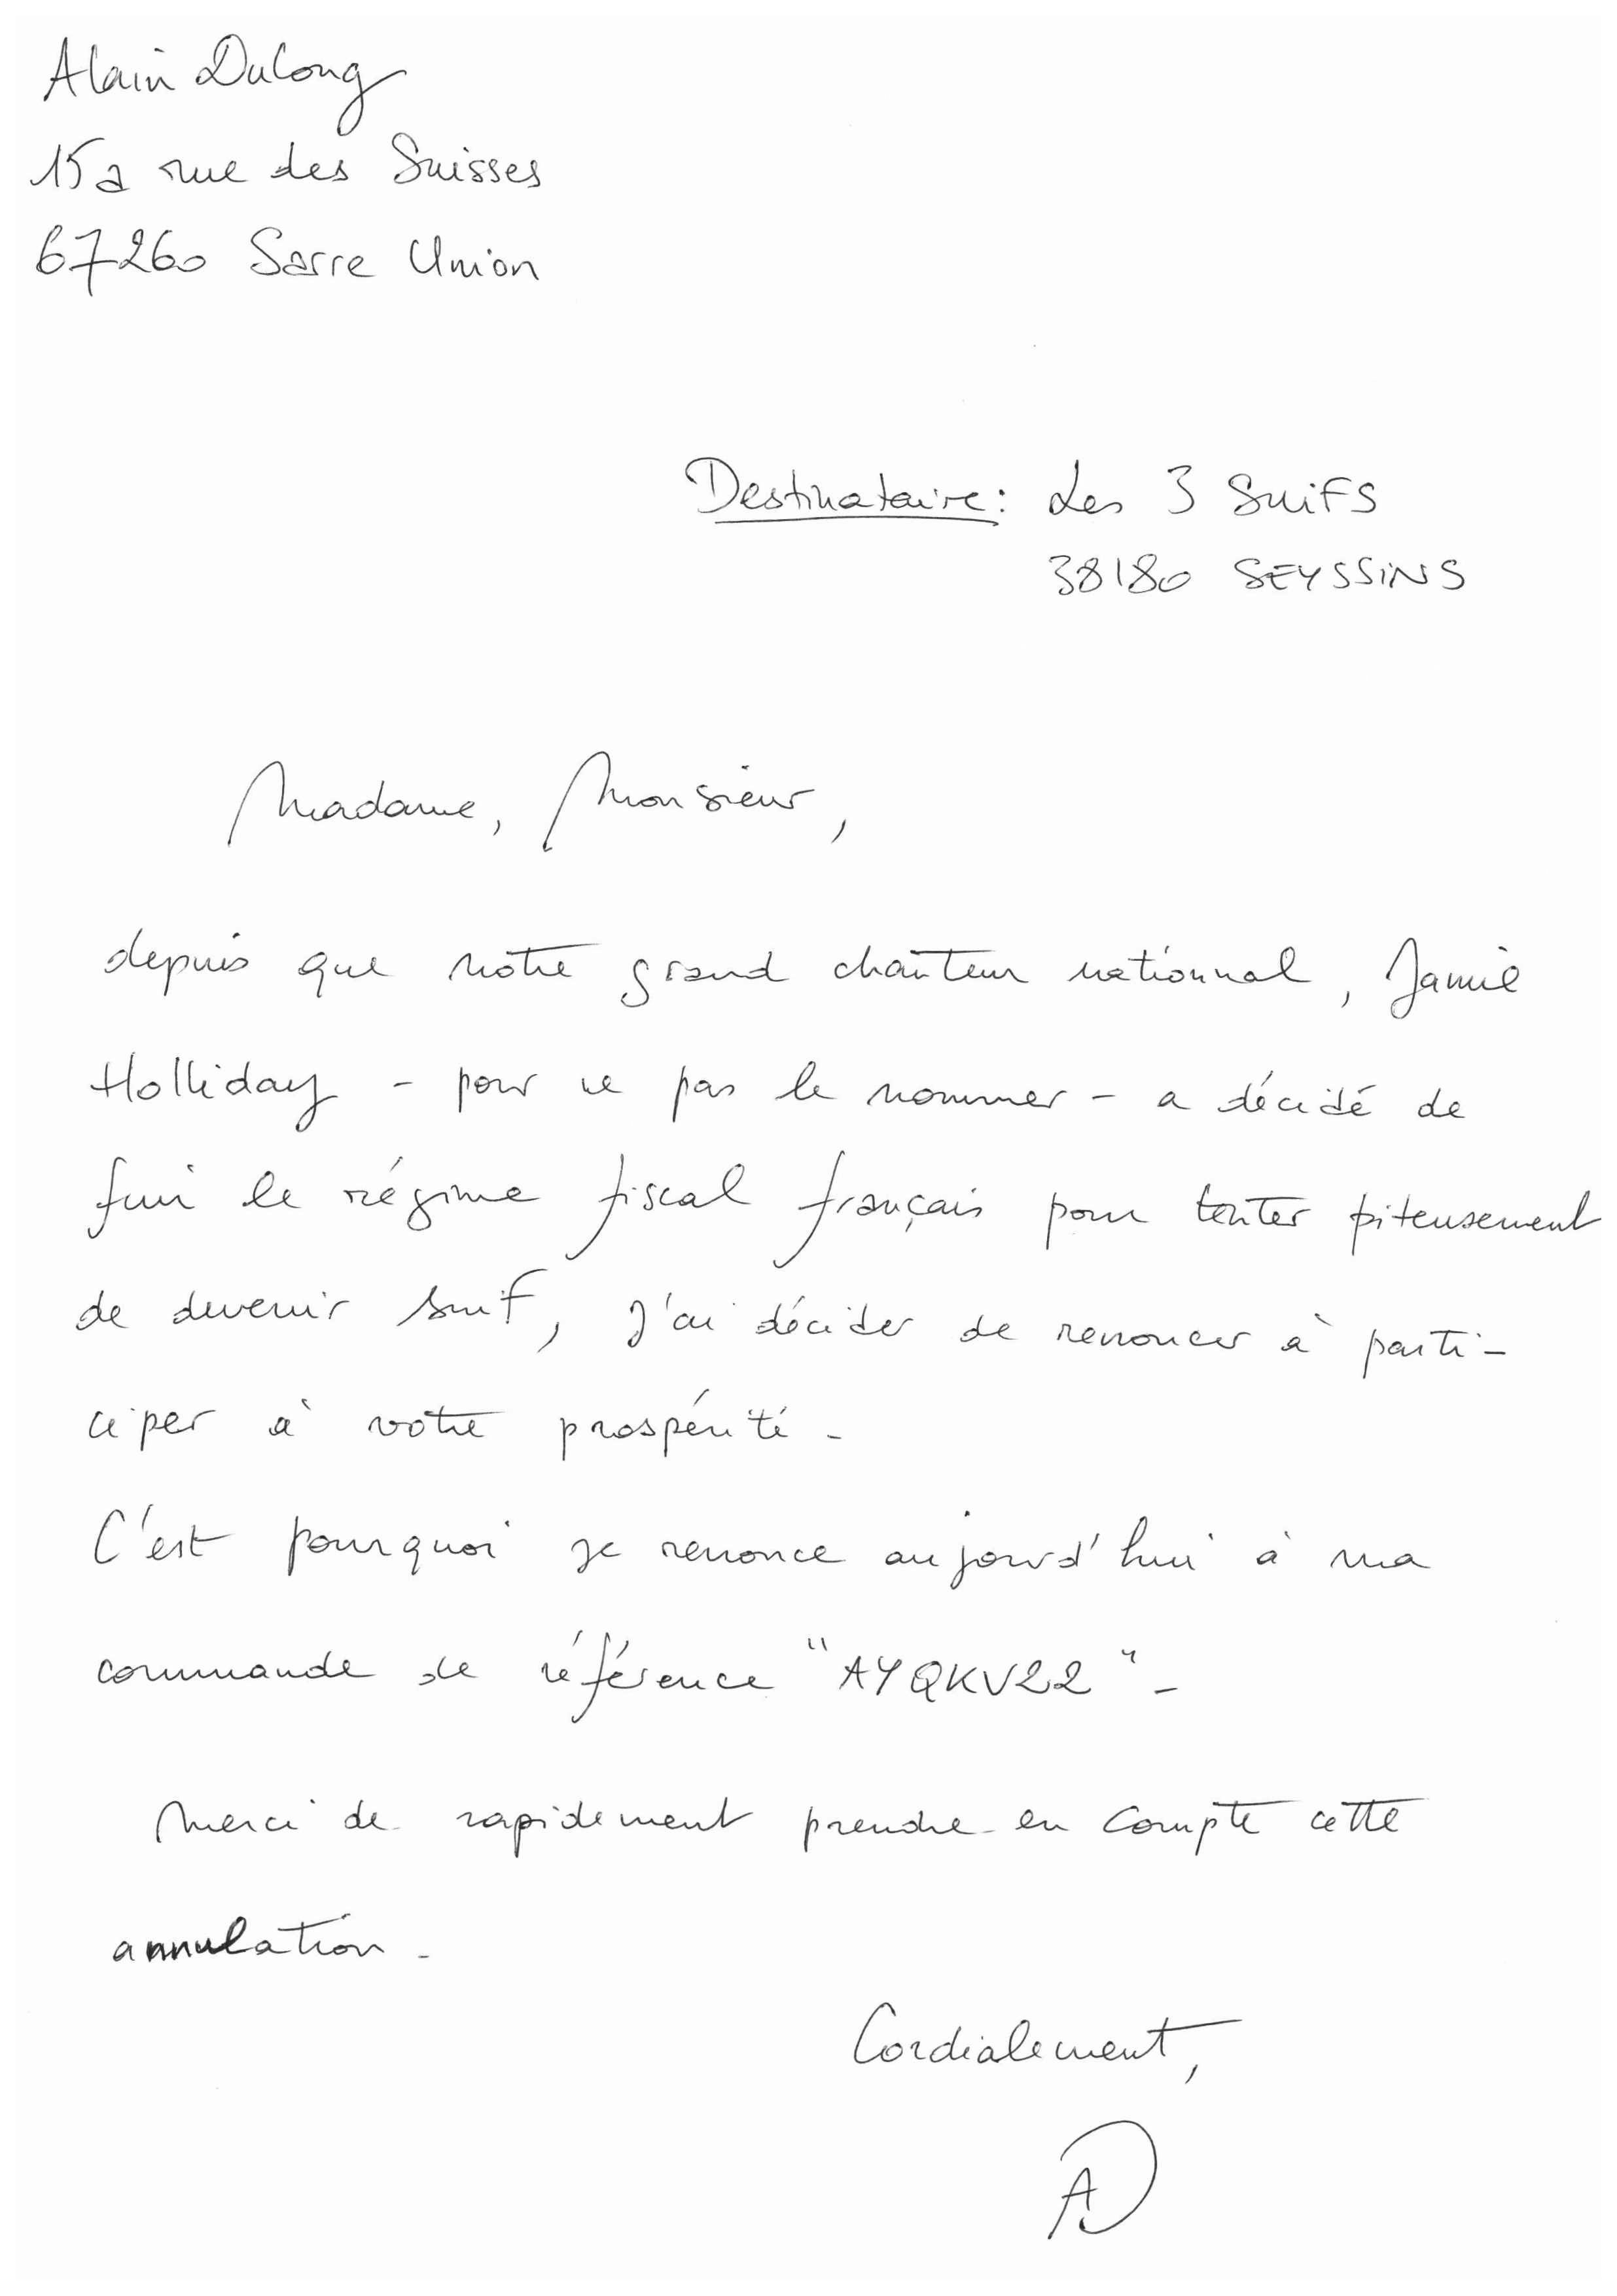 Alain Dulong
15a rue des Suisses
67260 Sarre Union
Destinataire: Les 3 SuiFS
38180 SEYSSINS
Madame, Monsieur,
depuis que notre grand chanteur nationnal, Jamie
Holliday - pour ne pas le nommer - a décidé de
fuir le régime fiscal français pour tenter piteusement
de devenir suiF, j'ai décider de renoncer à parti-
ciper à votre prospérité.
C'est pourquoi je renonce aujourd'hui à ma
commande de référence "AYQKV22".
Merci de rapidement prendre en compte cette
annulation.
Cordialement,
AD